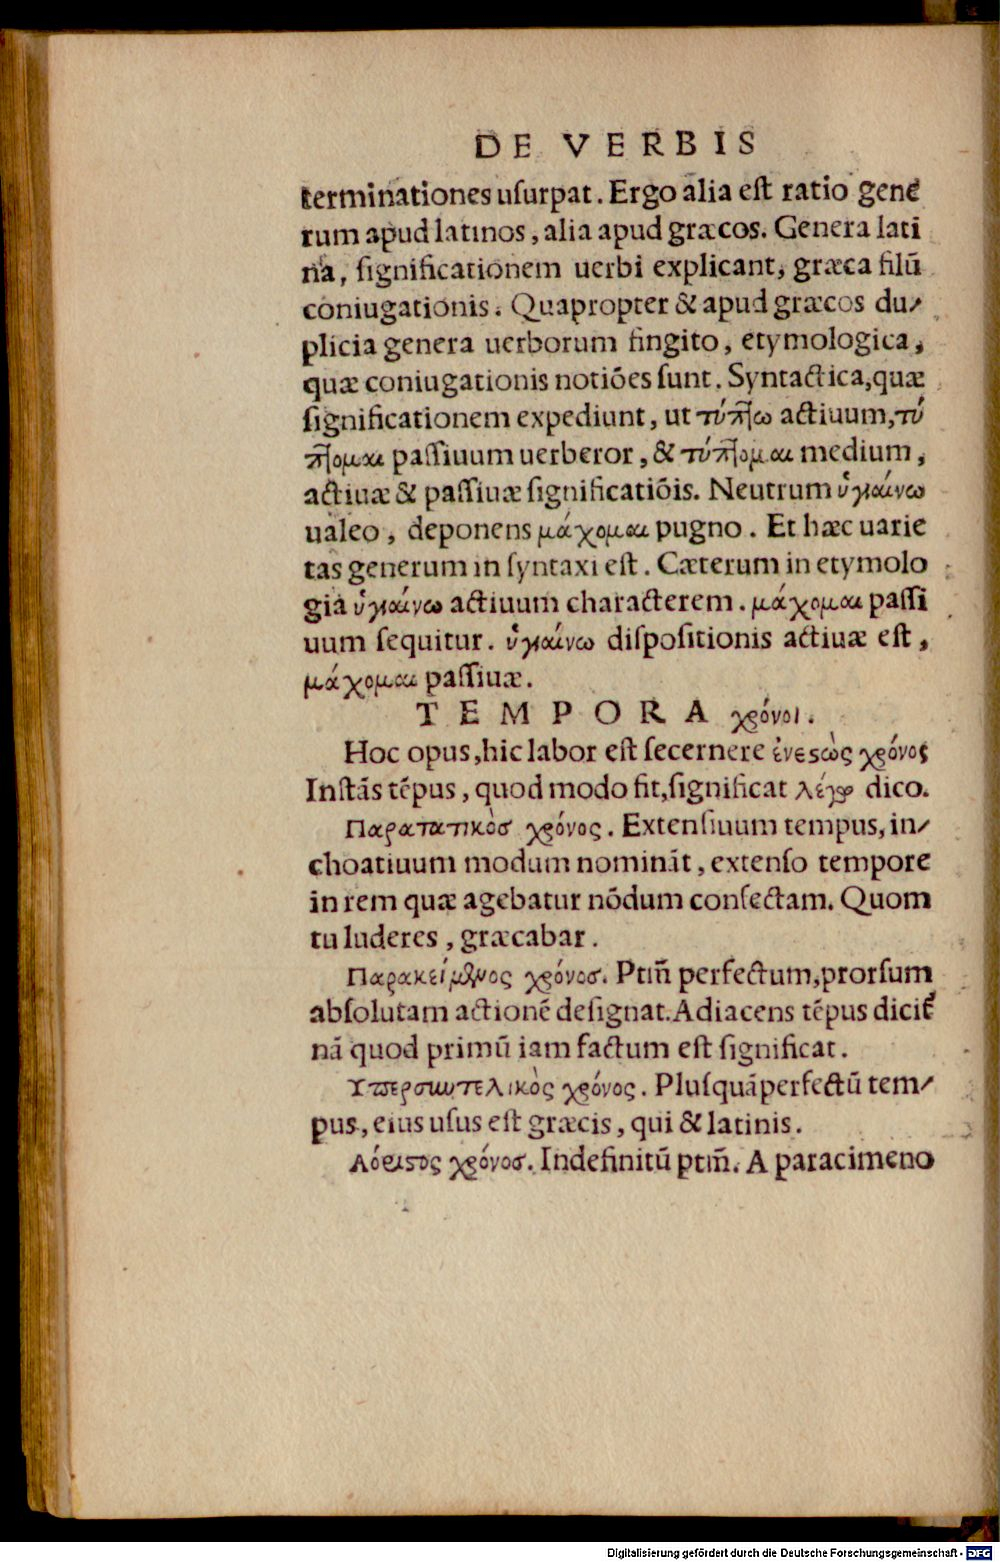 DE VERBIS
terminationes uſurpat. Ergo alia eſt ratio gene
rum apud latinos, alia apud græcos. Genera lati
na, ſignificationem uerbi explicant, græca filũ
coniugationis. Quapropter & apud græcos du⸗
plicia genera uerborum fingito, etymologica,
quæ coniugationis notiões ſunt. Syntactica, quæ
ſignificationem expediunt, ut τύπτω actiuum, τύ
πτομαι paſſiuum uerberor, & τύπτομαι medium,
actiuæ & paſſiuæ ſignificatiõis. Neutrum ὑγιαίνω
ualeo, deponens μάχομαι pugno. Et hæc uarie
tas generum in ſyntaxi eſt. Cæterum in etymolo
gia ὑγιαίνω actiuum characterem. μάχομαι paſſi
uum ſequitur. ὑγιαίνω diſpoſitionis actiuæ eſt,
μάχομαι paſſiuæ.
TEMPORA χρόνοι.
Hoc opus, hic labor eſt ſecernere ἐνεϛὼς χρόνος
Inſtãs tẽpus, quod modo fit, ſignificat λέγω dico.
Παρατατικὸσ χρόνος. Extenſiuum tempus, in⸗
choatiuum modum nominãt, extenſo tempore
in rem quæ agebatur nõdum confectam. Quom
tu luderes, græcabar.
Παρακείμενος χρόνοσ. Ptm̃ perfectum, prorſum
abſolutam actionẽ deſignat. Adiacens tẽpus dicit̃
nã quod primũ iam factum eſt ſignificat.
Υπερσυντελικὸς χρόνος. Pluſquãperfectũ tem⸗
pus, eius uſus eſt græcis, qui & latinis.
Αόριϛος χρόνοσ. Indefinitũ ptm̃. A paracimeno
Digitalisierung gefördert durch die Deutsche Forschungsgemeinschaft - DFG